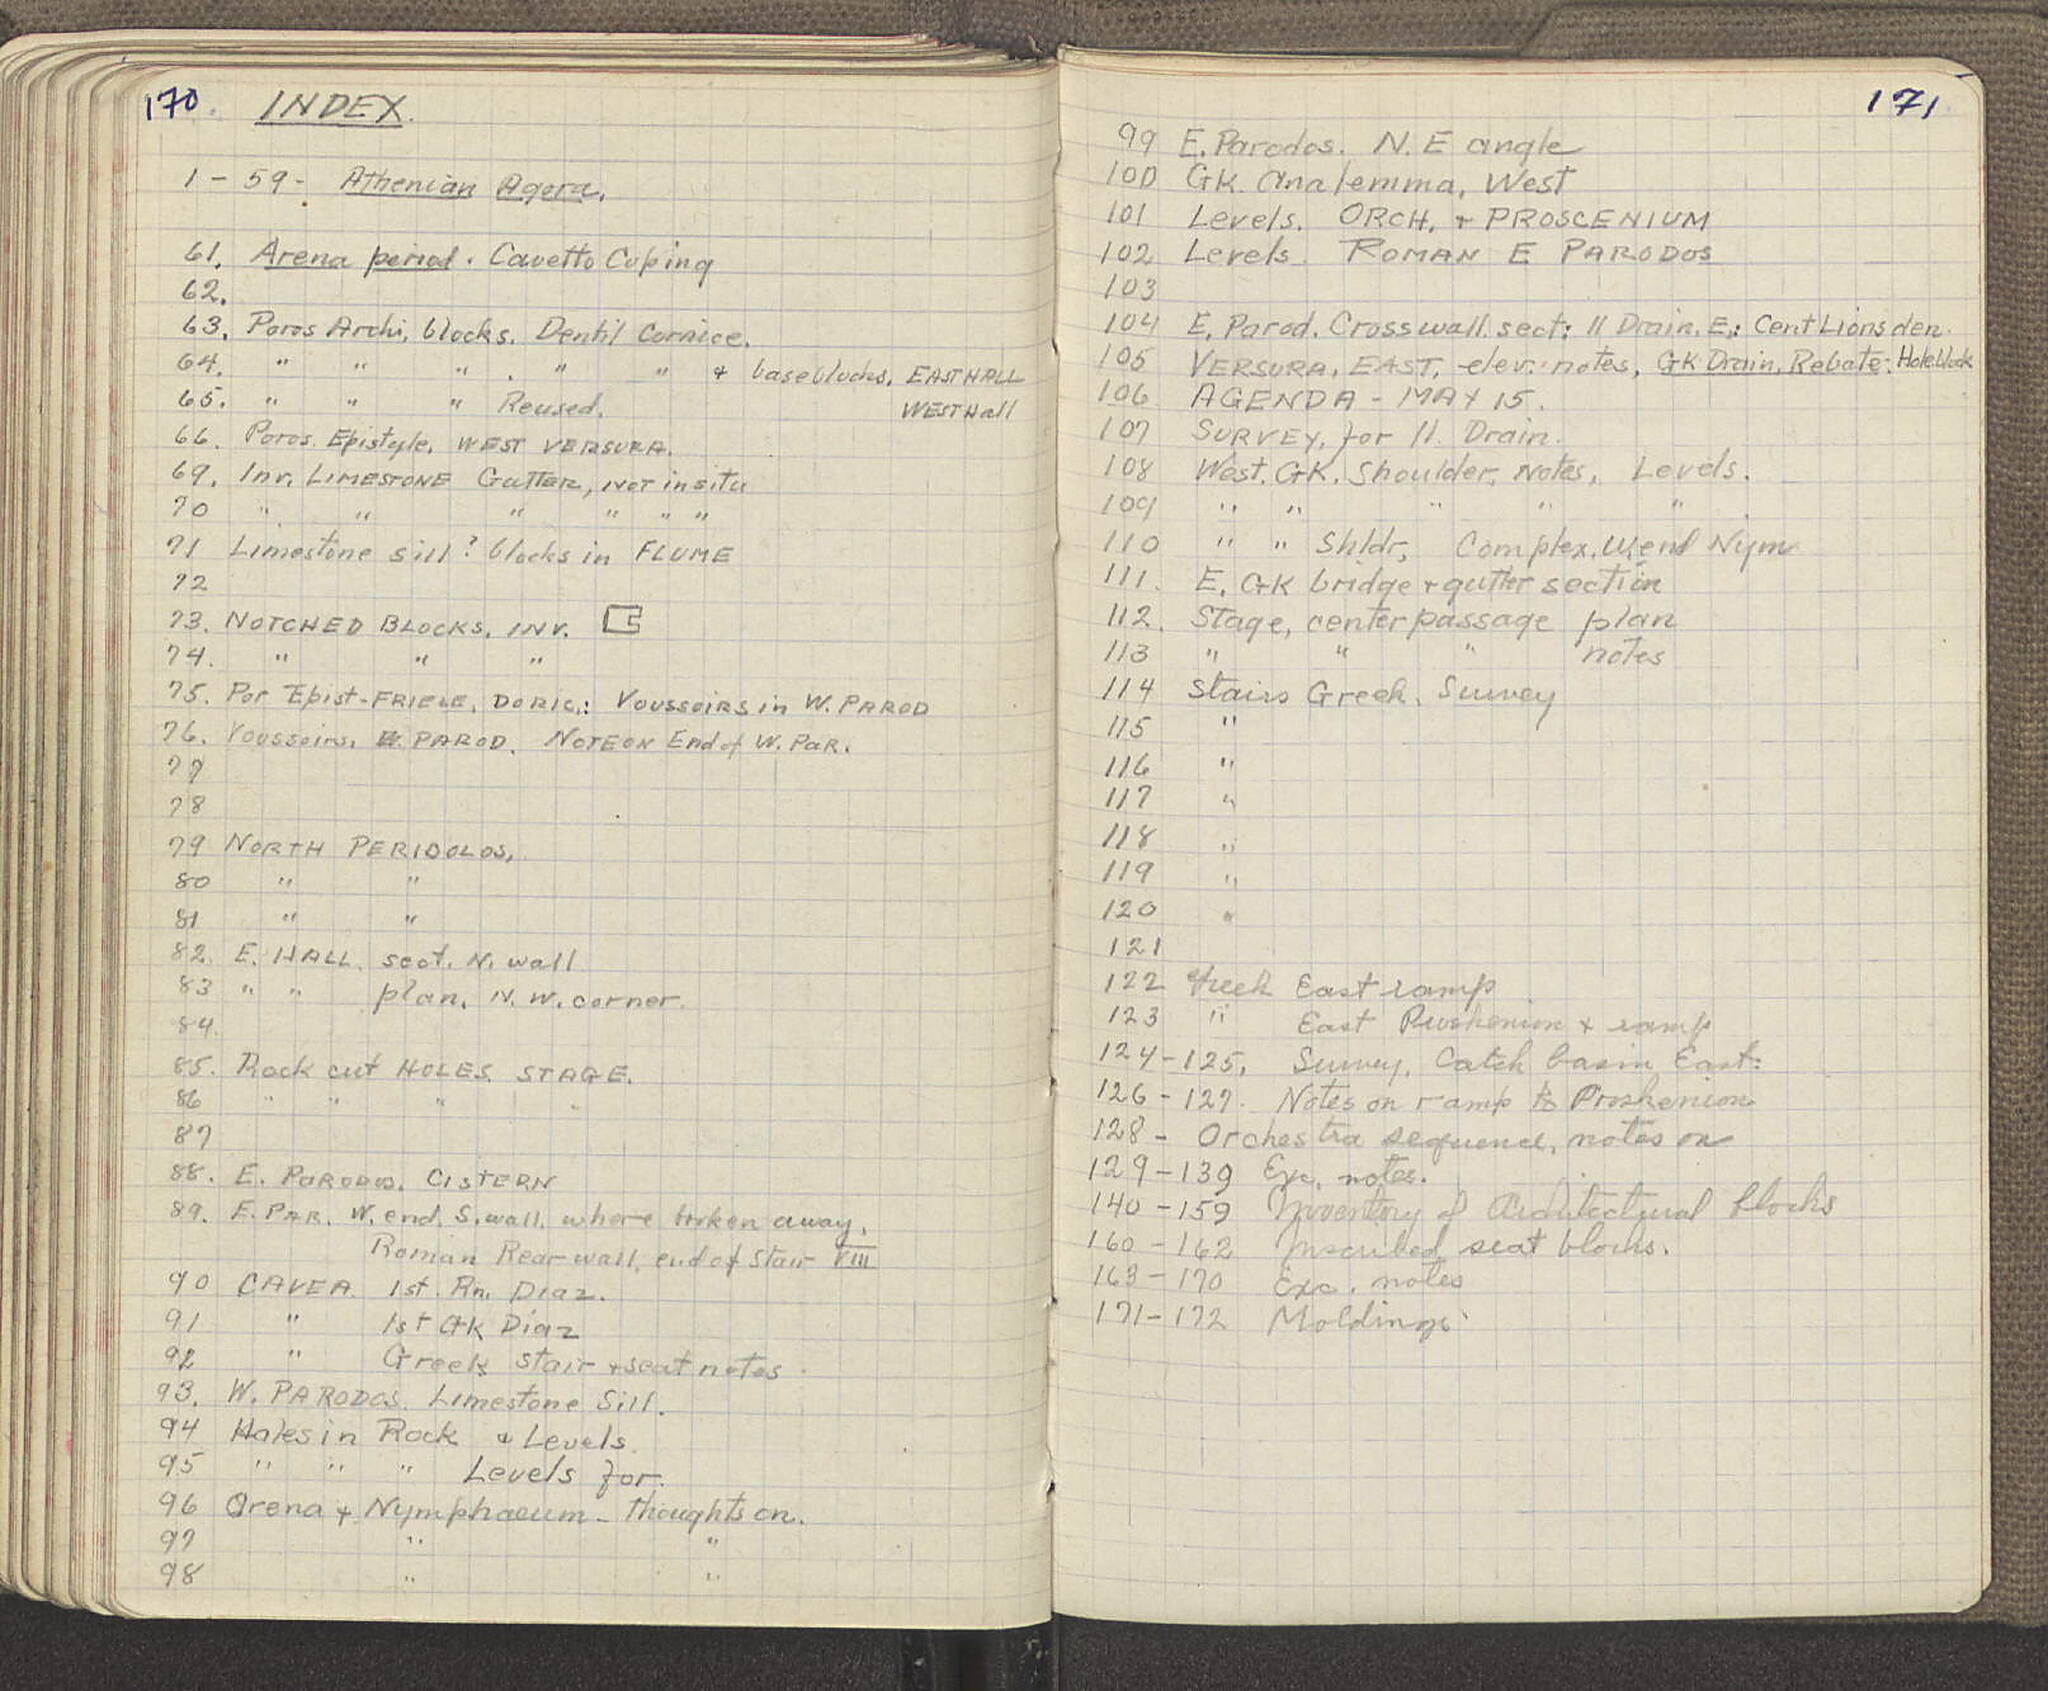 170. INDEX.
1 - 59 - Athenian Agora.
61. Arena period. Cavetto Coping
62.
63. Poros Archi. blocks. Dentil Cornice.
64. " " " . " " & base blocks, EAST HALL
65. " " " Reused. WEST Hall
66. Poros. Epistyle, WEST VERSURA.
69. Inv. LIMESTONE GUTTER, NOT in situ
70 " " " " " "
71 Limestone sill? blocks in FLUME
72
73. NOTCHED BLOCKS, INV.
74. " " "
75. Por Epist-FRIEZE, DORIC,: VOUSSOIRS in W. PAROD
76. Voussoirs, W. PAROD. NOTE ON End of W. PAR.
77
78
79 NORTH PERIBOLOS,
80 " "
81 " "
82. E. HALL. sect. N. wall
83 " " plan, N. W. corner.
84.
85. Rock cut HOLES. STAGE.
86 " " " "
87
88. E. PARODOS. CISTERN
89. E. PAR. W. end. S. wall. where broken away,
Roman Rear wall, end of stair VIII
90 CAVEA. 1st. Rn. Diaz.
91 " 1st GK Diaz
92 " Greek stair & seat notes.
93. W. PARODOS. Limestone Sill.
94 Holes in Rock & Levels.
95 " " " Levels for.
96 Arena & Nymphaeum - thoughts on.
97 " "
98 " "
171
99 E. Parodos. N. E angle
100 GK. analemma, West
101 Levels. ORCH. & PROSCENIUM
102 Levels. ROMAN E PARODOS
103
104 E. Parod. Crosswall. sect: 11 Drain. E,: Cent Lions den.
105 VERSURA, EAST, elev: notes, GK Drain, Rebate: Hole block
106 AGENDA - MAY 15.
107 SURVEY, for 11. Drain.
108 West. GK. Shoulder, Notes, Levels.
109 " " " " "
110 " " Shldr, Complex, W. end Nym
111. E. GK bridge & gutter section
112. Stage, center passage plan
113 " " " notes
114 Stairs Greek. Survey
115 "
116 "
117 "
118 "
119 "
120 "
121
122 Greek East ramp
123 " East Proskenion & ramp
124-125, Survey, Catch basin East:
126-127. Notes on ramp to Proskenion
128 - Orchestra sequence, notes on
129-139 Exc. notes.
140-159 Inventory of Architectural blocks
160-162 Inscribed seat blocks.
163-170 Exc. notes
171-172 Moldings